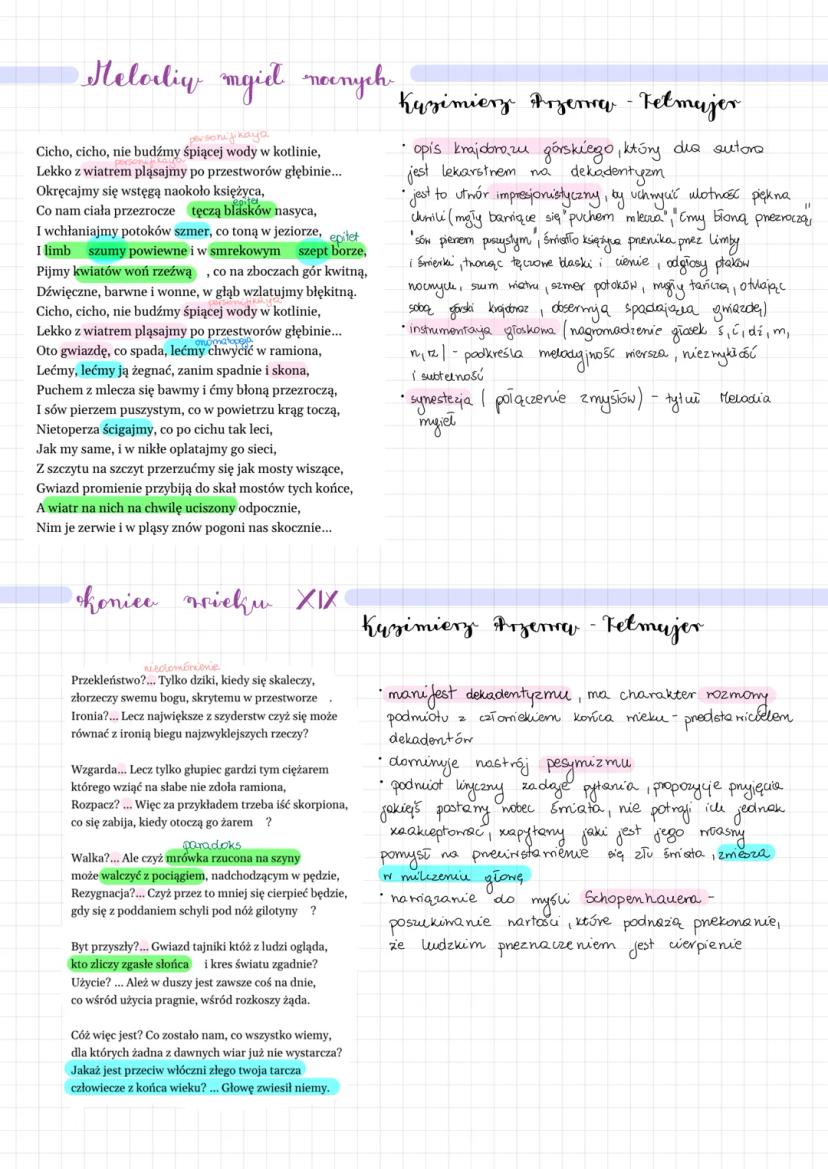 Melodia mgieł nocnych
Kazimierz Przerwa - Tetmajer
personifikacja
Cicho, cicho, nie budźmy śpiącej wody w kotlinie,
personifikacja
Lekko z wiatrem pląsajmy po przestworów głębinie...
Okręcajmy się wstęgą naokoło księżyca,
epitet
Co nam ciała przezrocze tęczą blasków nasyca,
I wchłaniajmy potoków szmer, co toną w jeziorze,
epitet
I limb szumy powiewne i w smrekowym szept borze,
Pijmy kwiatów woń rzeźwą , co na zboczach gór kwitną,
Dźwięczne, barwne i wonne, w głąb wzlatujmy błękitną.
personifikacja
Cicho, cicho, nie budźmy śpiącej wody w kotlinie,
Lekko z wiatrem pląsajmy po przestworów głębinie...
onomatopeja
Oto gwiazdę, co spada, lećmy chwycić w ramiona,
Lećmy, lećmy ją żegnać, zanim spadnie i skona,
Puchem z mlecza się bawmy i ćmy błoną przezroczą,
I sów pierzem puszystym, co w powietrzu krąg toczą,
Nietoperza ścigajmy, co po cichu tak leci,
Jak my same, i w nikłe oplatajmy go sieci,
Z szczytu na szczyt przerzućmy się jak mosty wiszące,
Gwiazd promienie przybiją do skał mostów tych końce,
A wiatr na nich na chwilę uciszony odpocznie,
Nim je zerwie i w pląsy znów pogoni nas skocznie...
• opis krajobrazu górskiego, który dla autora
jest lekarstwem na dekadentyzm
• jest to utwór impresjonistyczny, by uchwycić ulotność piękna
chwili (mgły bawiące się "puchem mlecza", "ćmy błoną przezroczą"
"sów pierzem puszystym", światło księżyca przenika przez limby
i świerki, tworząc tęczowe blaski i cienie, odgłosy ptaków
nocnych, szum wiatru, szmer potoków, mgły tańczą, otulając
sobą górski krajobraz, obserwują spadającą gwiazdę)
• instrumentacja głoskowa (nagromadzenie głosek ś, ć, dź, m,
n, rz) - podkreśla melodyjność wiersza, niezwykłość
i subtelność
• synestezja (połączenie zmysłów) - tytuł Melodia
mgieł
Koniec wieku XIX
Kazimierz Przerwa - Tetmajer
niedomówienie
Przekleństwo?... Tylko dziki, kiedy się skaleczy,
złorzeczy swemu bogu, skrytemu w przestworze .
Ironia?... Lecz największe z szyderstw czyż się może
równać z ironią biegu najzwyklejszych rzeczy?
Wzgarda... Lecz tylko głupiec gardzi tym ciężarem
którego wziąć na słabe nie zdoła ramiona,
Rozpacz? ... Więc za przykładem trzeba iść skorpiona,
co się zabija, kiedy otoczą go żarem ?
paradoks
Walka?... Ale czyż mrówka rzucona na szyny
może walczyć z pociągiem, nadchodzącym w pędzie,
Rezygnacja?... Czyż przez to mniej się cierpieć będzie,
gdy się z poddaniem schyli pod nóż gilotyny ?
Byt przyszły?... Gwiazd tajniki któż z ludzi ogląda,
kto zliczy zgasłe słońca i kres światu zgadnie?
Użycie? ... Ależ w duszy jest zawsze coś na dnie,
co wśród użycia pragnie, wśród rozkoszy żąda.
Cóż więc jest? Co zostało nam, co wszystko wiemy,
dla których żadna z dawnych wiar już nie wystarcza?
Jakaż jest przeciw włóczni złego twoja tarcza
człowiecze z końca wieku? ... Głowę zwiesił niemy.
• manifest dekadentyzmu, ma charakter rozmowy
podmiotu z człowiekiem końca wieku - przedstawicielem
dekadentów
• dominuje nastrój pesymizmu
• podmiot liryczny zadaje pytania, propozycje przyjęcia
jakiejś postawy wobec świata, nie potrafi ich jednak
zaakceptować, zapytany jaki jest jego własny
pomysł na przeciwstawienie się złu świata, zwiesza
w milczeniu głowę
• nawiązanie do myśli Schopenhauera -
poszukiwanie wartości, które podważą przekonanie,
że ludzkim przeznaczeniem jest cierpienie